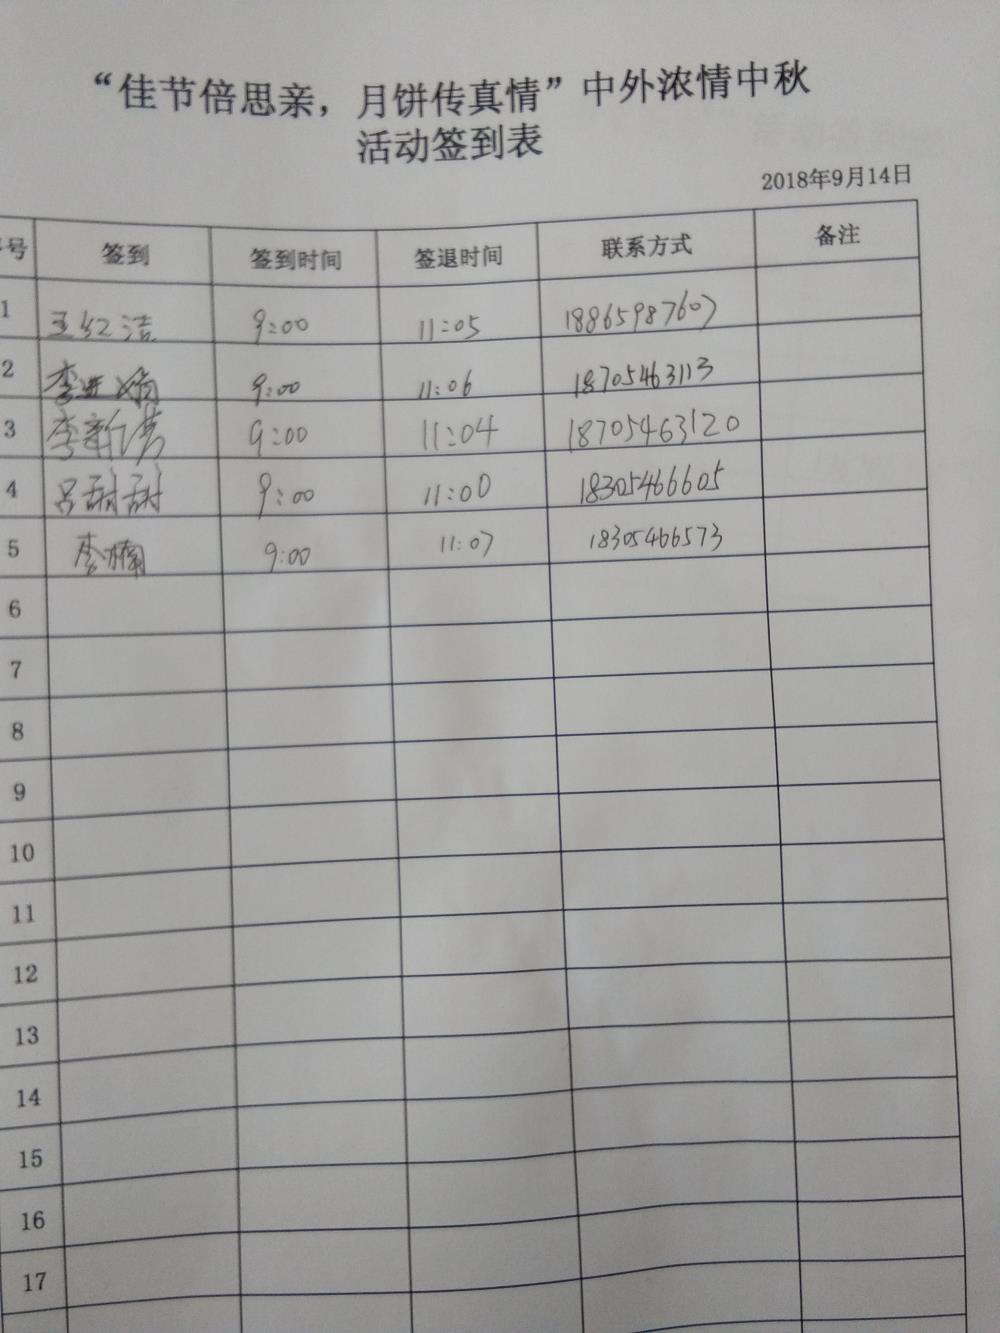 “佳节倍思亲，月饼传真情”中外浓情中秋
活动签到表
2018年9月14日
号 签到 签到时间 签退时间 联系方式 备注
1 王红洁 9:00 11:05 18865987607
2 李 9:00 11:06 18705463113
3 李新 9:00 11:04 18705463120
4 吕甜甜 9:00 11:00 18305466605
5 李楠 9:00 11:07 18305466573
6
7
8
9
10
11
12
13
14
15
16
17